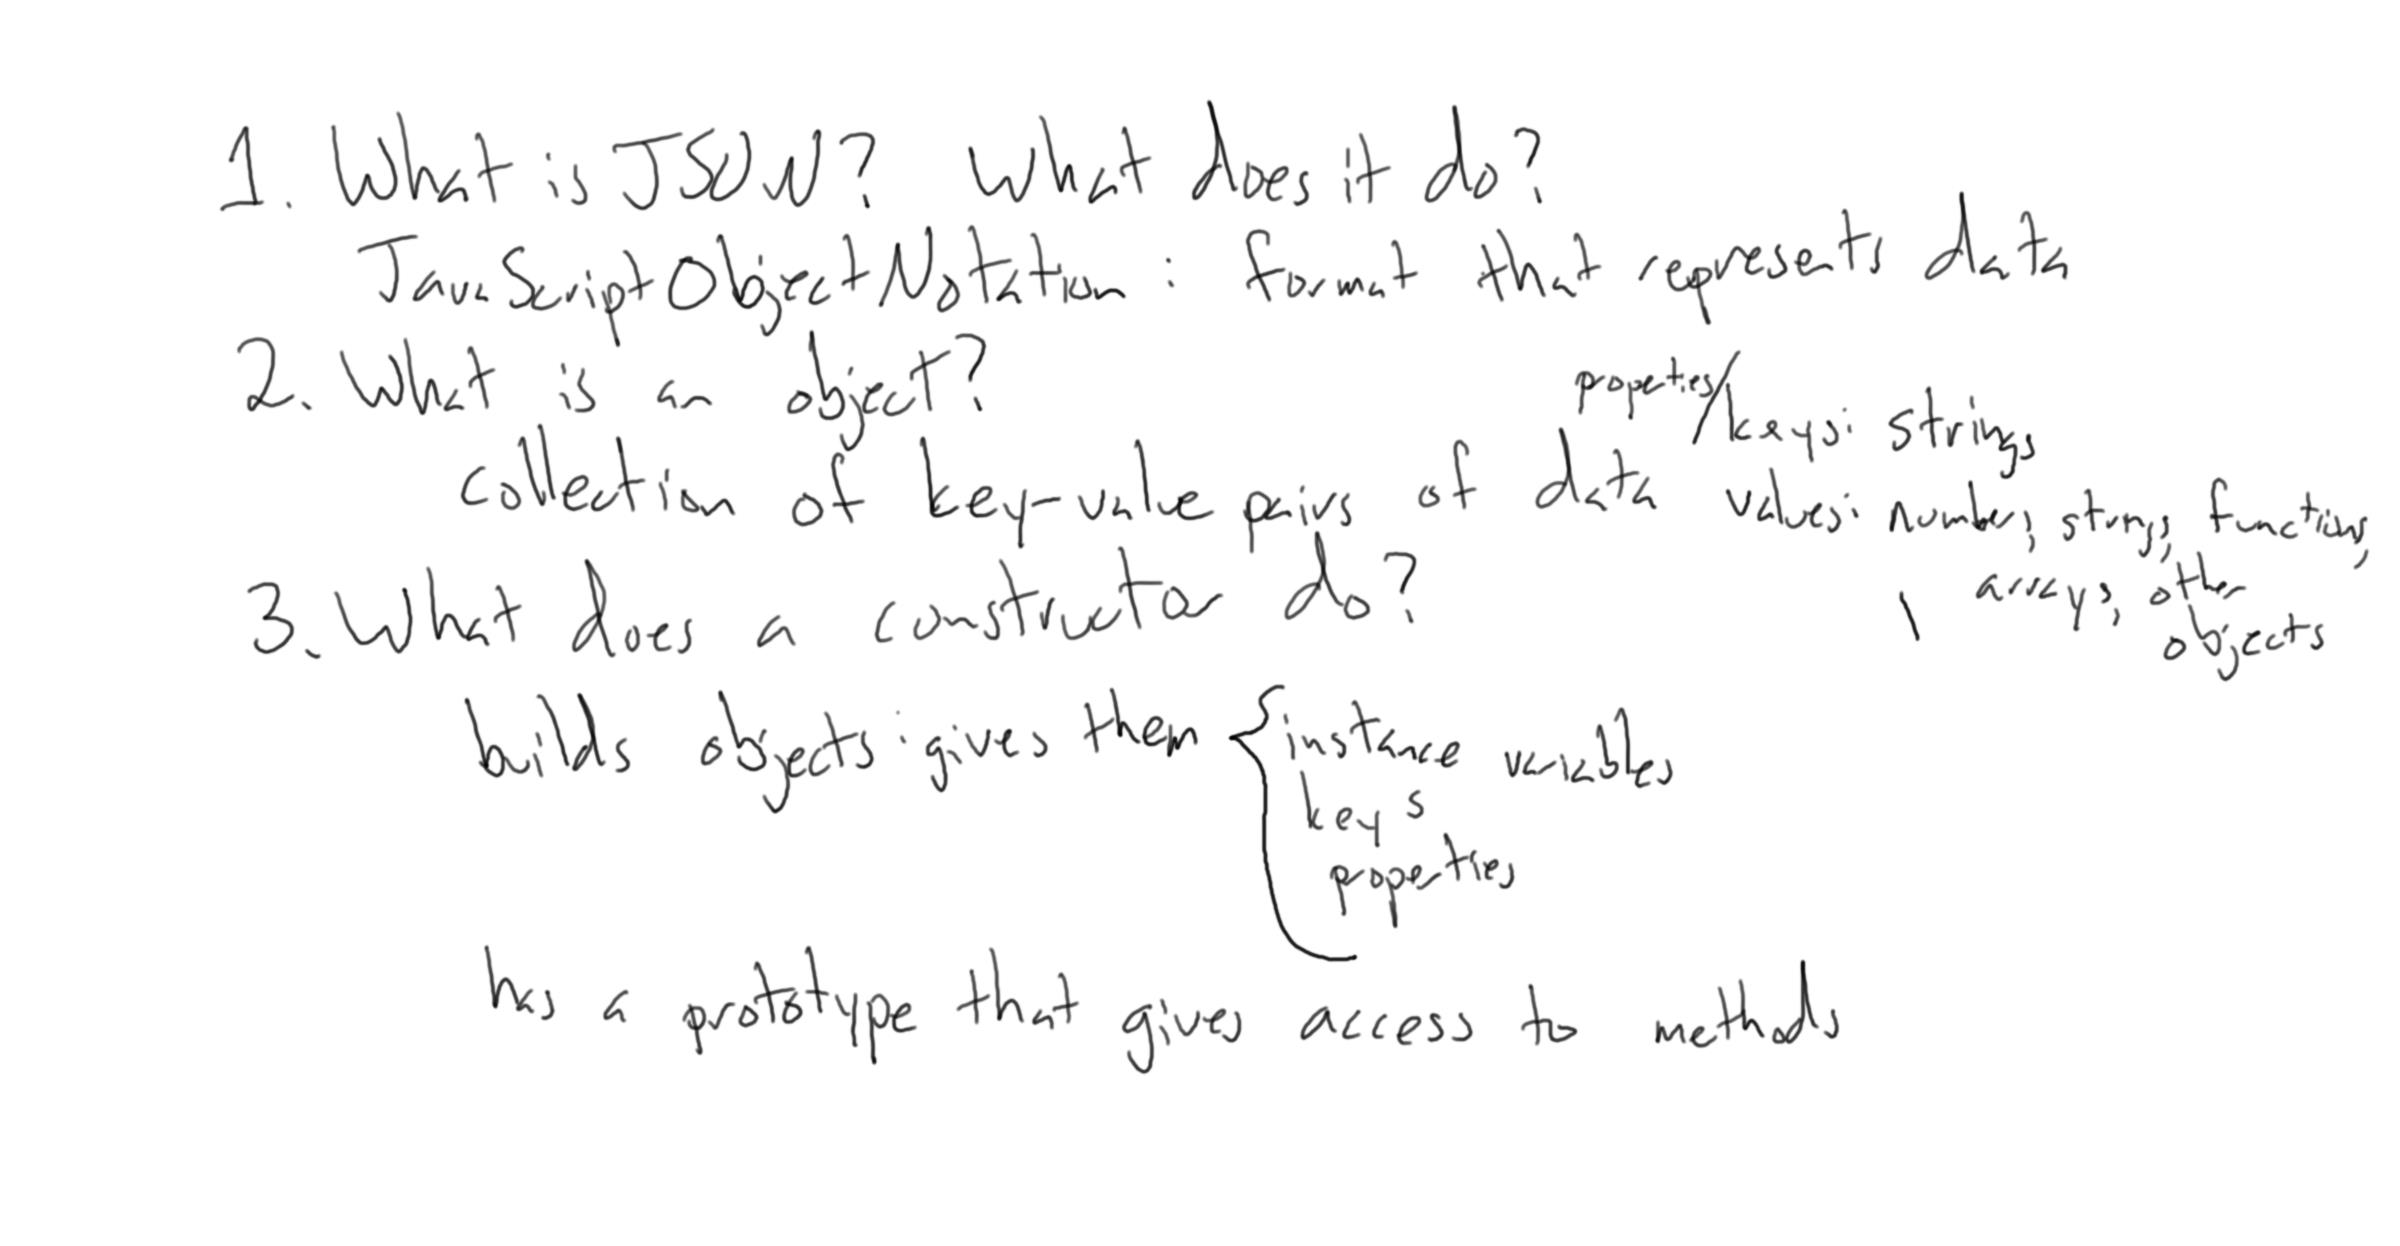 1. What is JSON? What does it do?
JavaScript Object Notation : format that represents data
2. What is an object?
properties/keys: strings
collection of key-value pairs of data
values: numbers, strings, functions,
arrays, other
objects
3. What does a constructor do?
builds objects: gives them { instance variables
keys
properties
has a prototype that gives access to methods